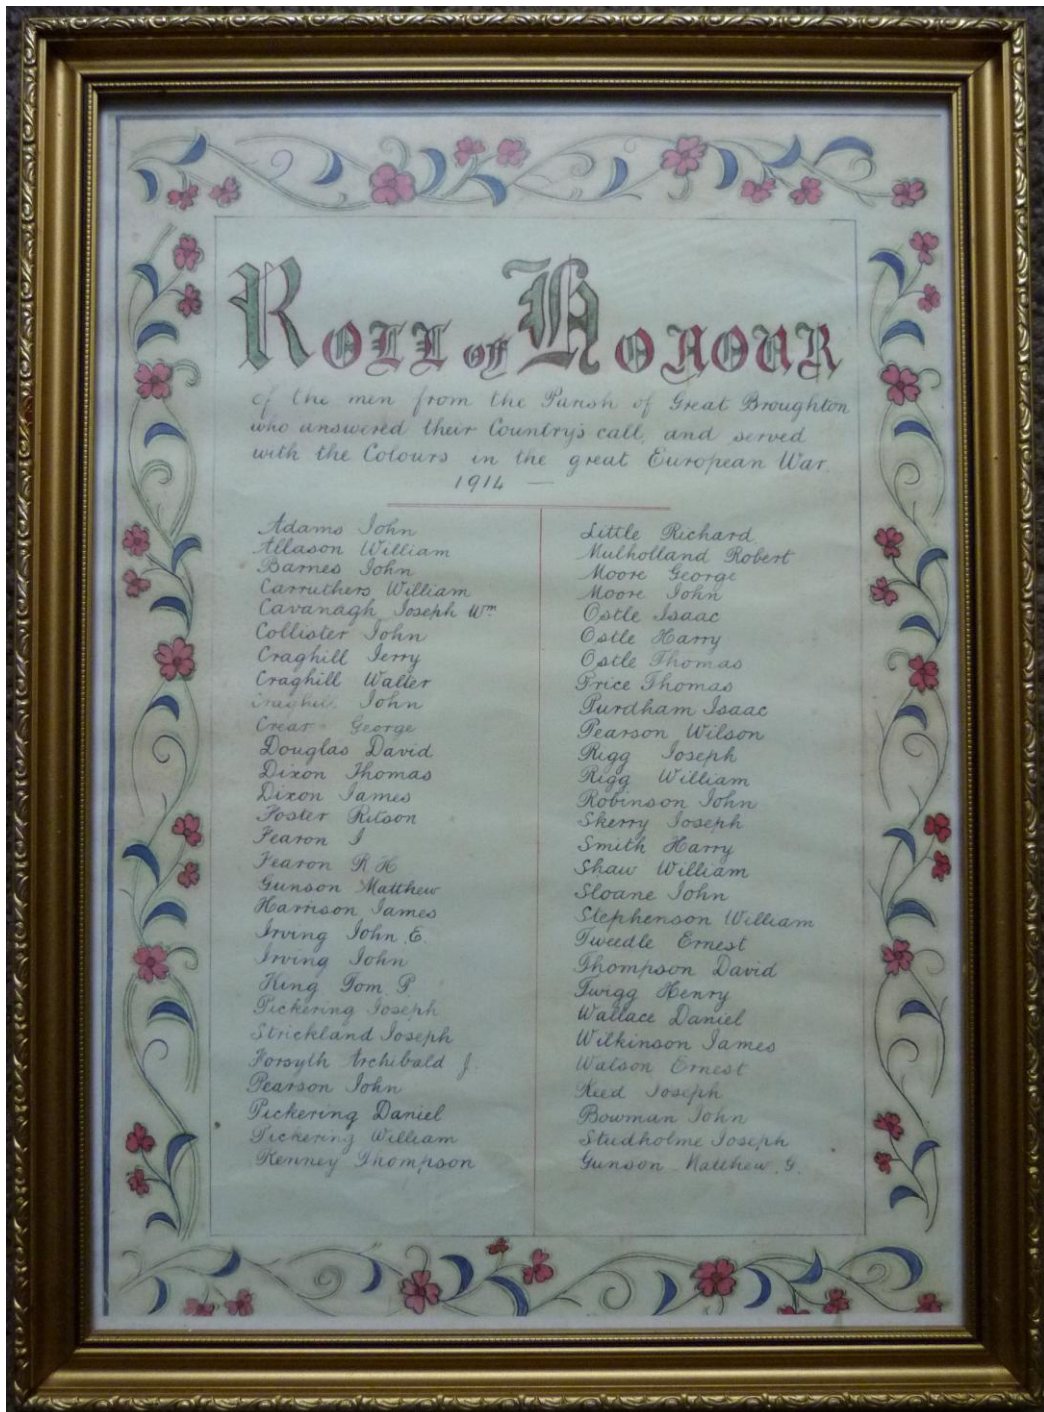 ROLL OF HONOUR
of the men from the Parish of Great Broughton
who answered their Country's call, and served
with the Colours in the great European War.
1914 —
Adams John
Allason William
Barnes John
Carruthers William
Cavanagh Joseph Wm.
Collister John
Craghill Jerry
Craghill Walter
Craghill John
Crear George
Douglas David
Dixon Thomas
Dixon James
Foster Ritson
Fearon J
Fearon R H
Gunson Matthew
Harrison James
Irving John E.
Irving John
King Tom P
Pickering Joseph
Strickland Joseph
Forsyth Archibald J.
Pearson John
Pickering Daniel
Pickering William
Kenney Thompson
Little Richard
Mulholland Robert
Moore George
Moore John
Ostle Isaac
Ostle Harry
Ostle Thomas
Price Thomas
Purdham Isaac
Pearson Wilson
Rigg Joseph
Rigg William
Robinson John
Skerry Joseph
Smith Harry
Shaw William
Sloane John
Stephenson William
Tweedle Ernest
Thompson David
Twigg Henry
Wallace Daniel
Wilkinson James
Watson Ernest
Reed Joseph
Bowman John
Studholme Joseph
Gunson Matthew. G.